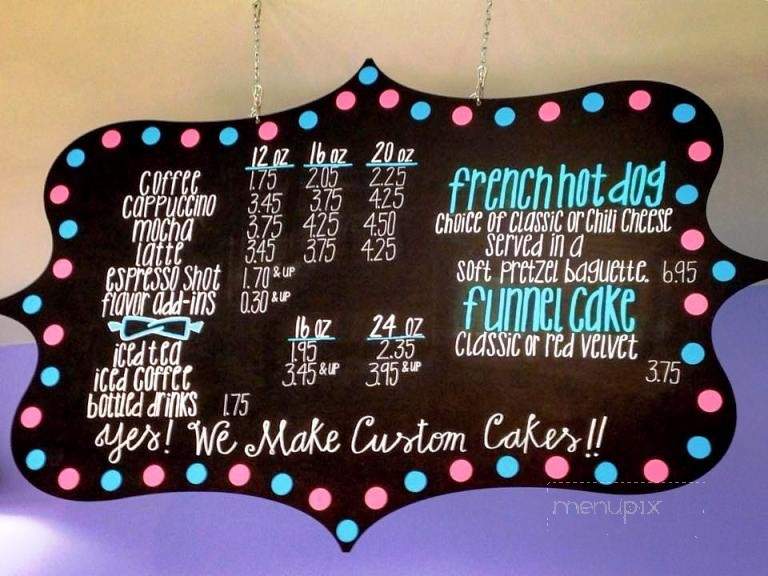 12 oz 16 oz 20 oz
coffee 1.75 2.05 2.25
cappuccino 3.45 3.75 4.25
mocha 3.75 4.25 4.50
latte 3.45 3.75 4.25
espresso shot 1.70 & up
flavor add-ins 0.30 & up
16 oz 24 oz
iced tea 1.95 2.35
iced coffee 3.45 & up 3.95 & up
bottled drinks 1.75
french hot dog
choice of classic or chili cheese
served in a
soft pretzel baguette. 6.95
funnel cake
classic or red velvet
3.75
yes! We Make Custom Cakes!!
menupix